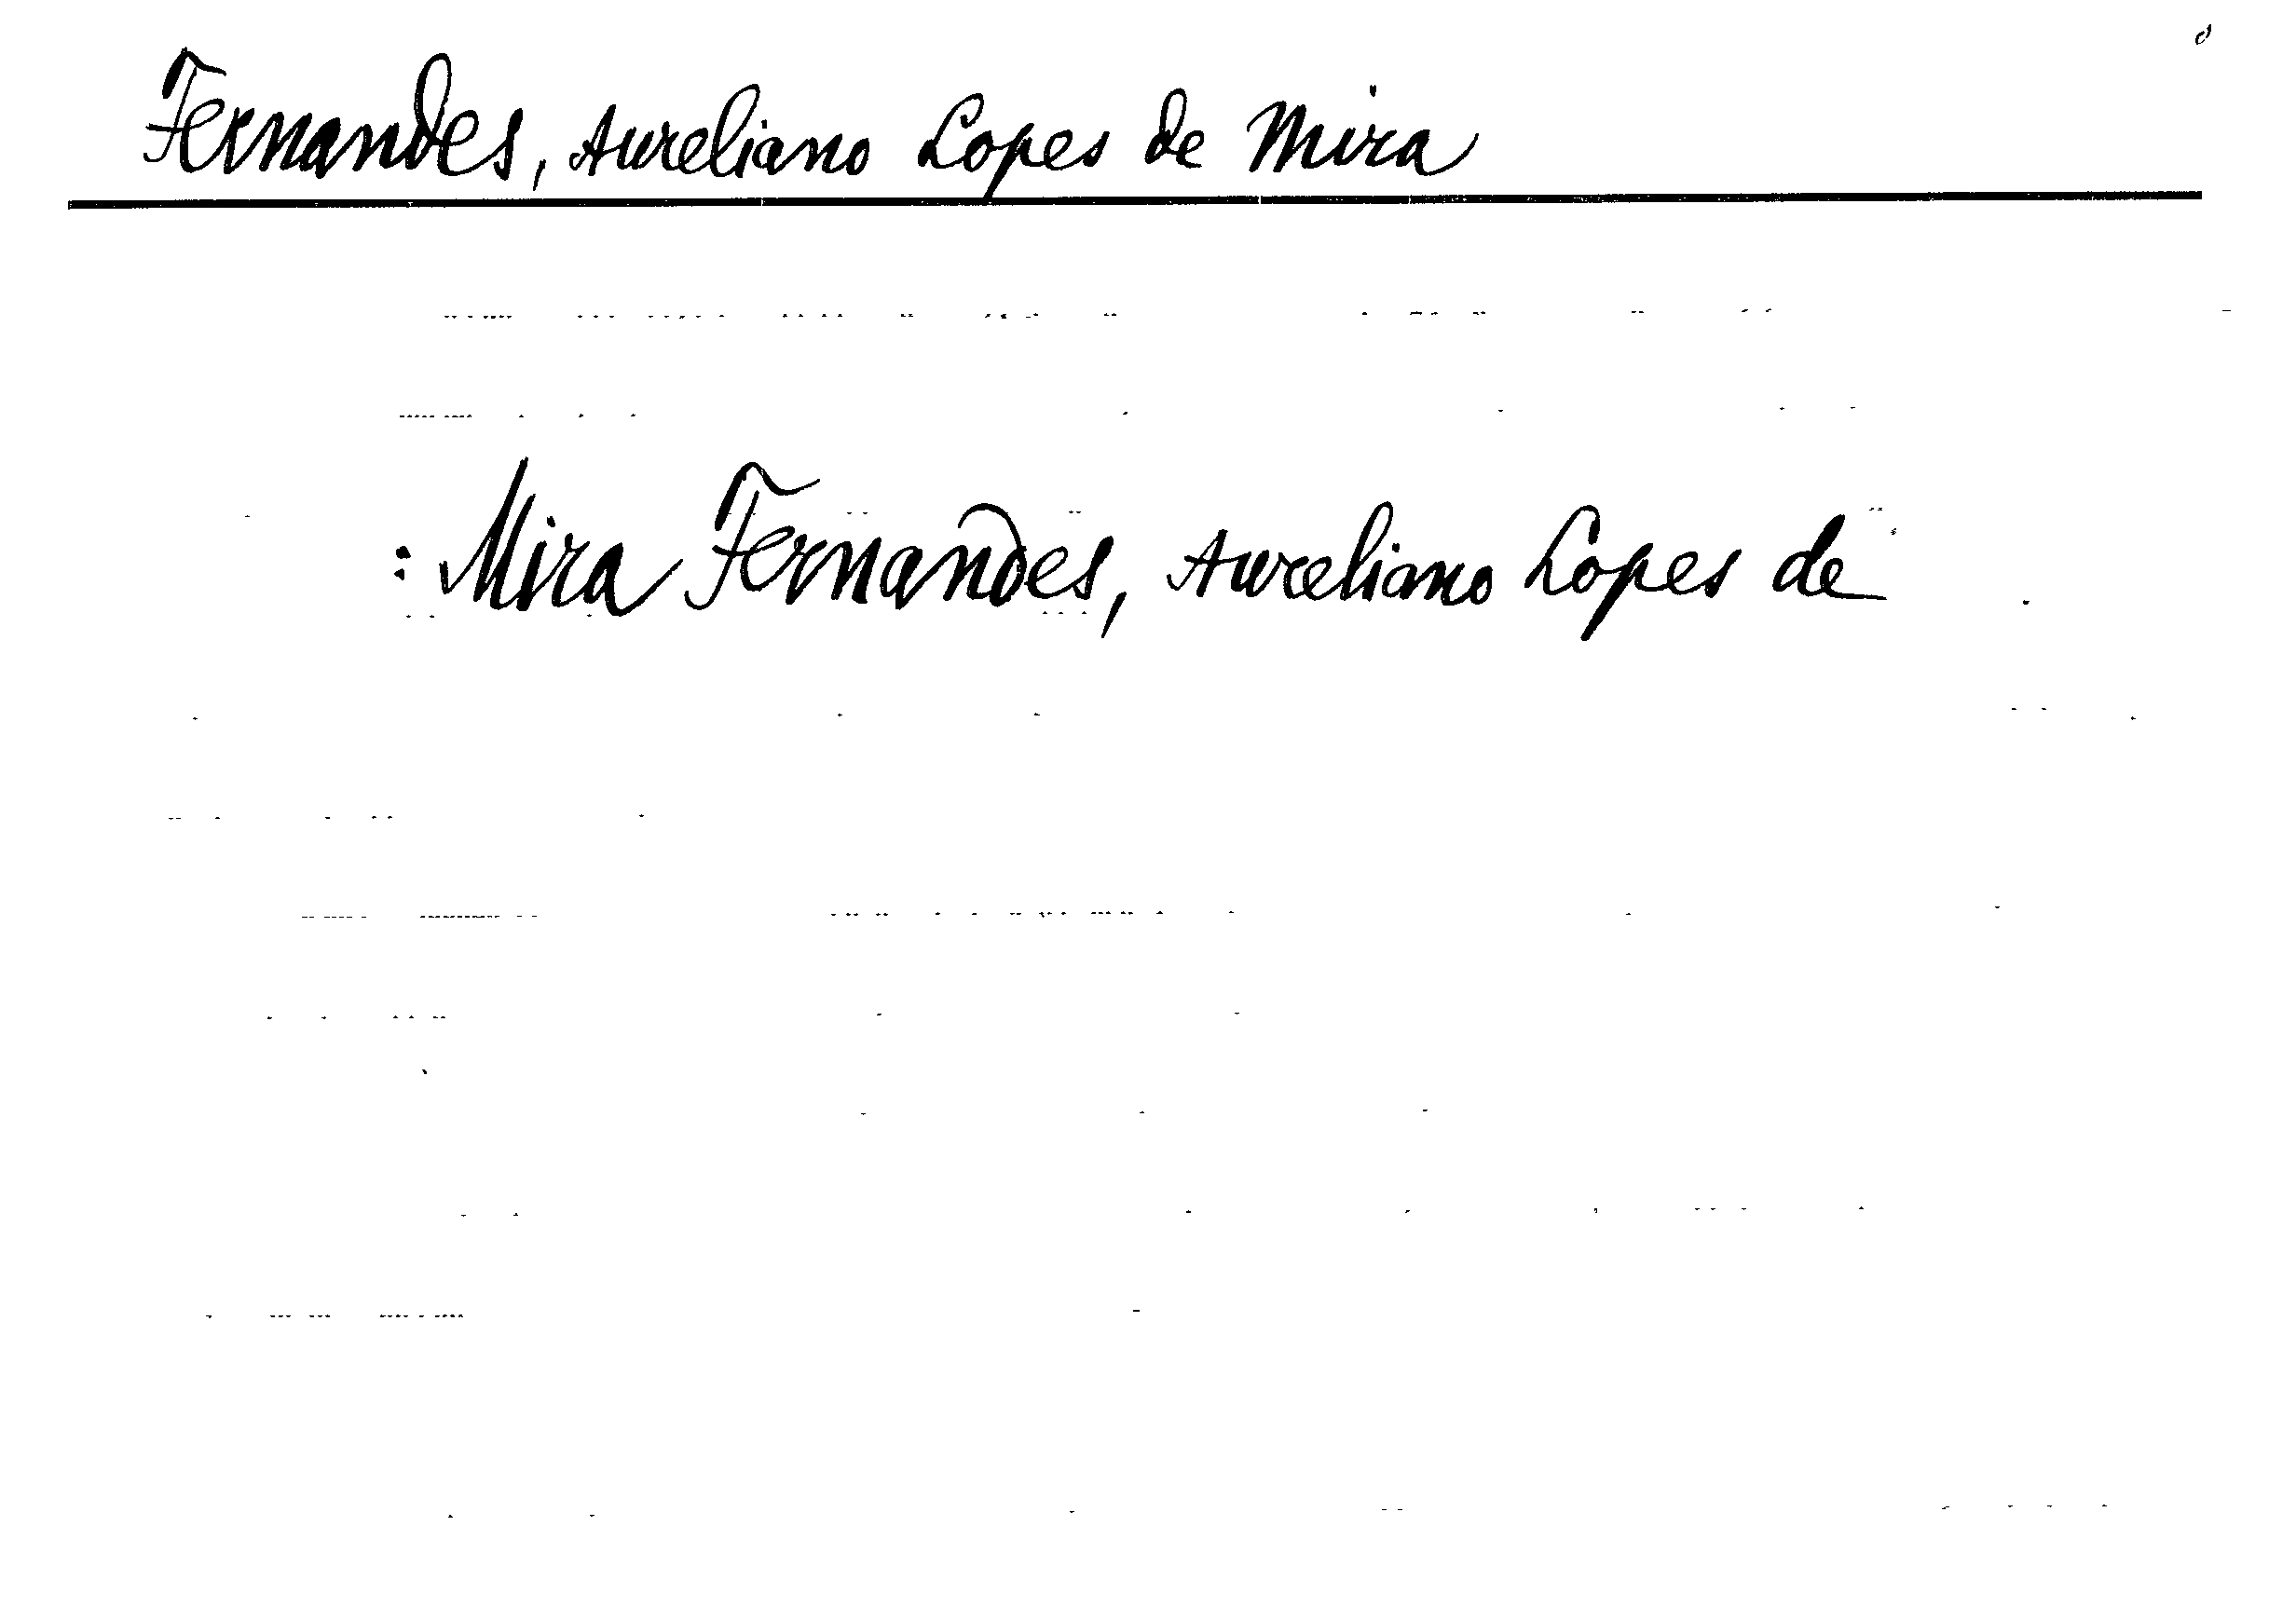 Fernandes, Aureliano Lopes de Mira
: Mira Fernandes, Aureliano Lopes de